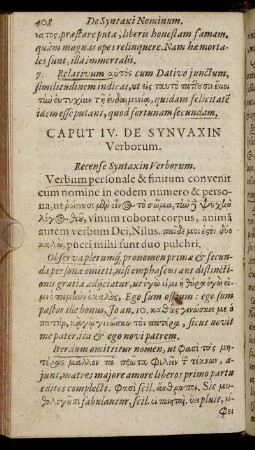 408 De Syntaxi Nominum.
præstare puta, liberis honestam famam,
quàm magnas opes relinquere. Nam hæ morta-
les sunt, illa immortalis.
7. Relativum αὐτὸς cum Dativo junctum,
similitudinem indicat, ut εἰς ταυτὸ
τὴν εὐτυχίαν τῇ εὐδαιμονίᾳ, quidam felicitatẽ
idem esse putant, quod fortunam secundam.
CAPUT IV. DE SYNVAXIN
Verborum.
Recense Syntaxin Verborum.
Verbum personale & finitum convenit
cum nomine in eodem numero & perso-
na, ut οἶνος τὸ σῶμα, τὴν ψυχὴν
λόγος θεοῦ, vinum roborat corpus, animã
autem verbum Dei, Nilus. παῖδέ μοι ἐστὶ δύο
καλὼ, pueri mihi sunt duo pulchri.
Observa plerumq́, pronomen primæ & secun-
dæ personæ omitti, nisi emphaseos aut distincti-
onis gratia adjiciatur, ut ἐγώ εἰμι ἐγώ
εἰμι ὁ ποιμὴν ὁ καλὸς, Ego sum ostium: ego sum
pastor ille bonus, Joan, 10. καθὼς γινώσκει με ὁ
πατὴρ, κᾀγὼ γινώσκω τὸν πατέρα, sicut novit
me pater, ita & ego novi patrem,
Iterdum omittitur nomen, ut φασὶ τὰς μη-
τέρας μᾶλλον τὰ πρῶτα φιλεῖν τέκνων, a-
junt, matres majore amore liberos primo partu
editos complecti. φασὶ scil. ἄνθρωποι. Sic μυ-
θολογοῦσι fabulantur, scil. οἱ ποιηταὶ. ὕει pluit,
φει